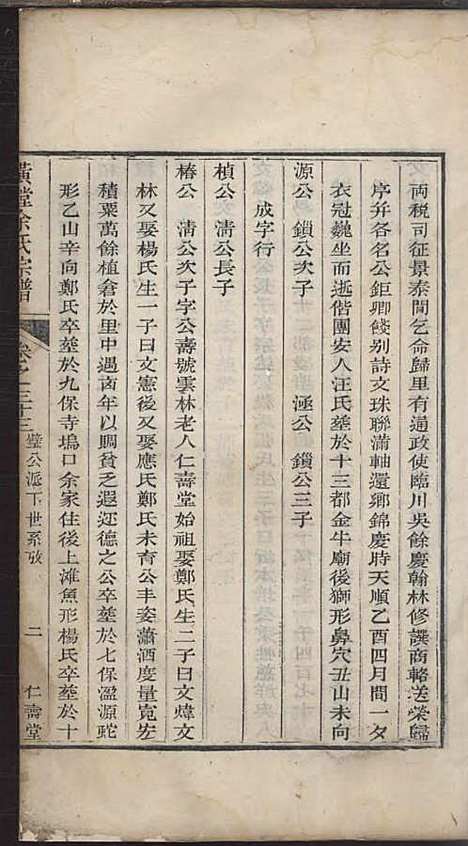 両税司征景泰間乞命歸里有通政使臨川吳餘慶翰林修譔商輅送榮歸
序并各名公鉅卿餞别詩文珠聯滿軸還鄉錦慶時天順乙酉四月間一夕
衣冠巍坐而逝偕團安人汪氏塟於十三都金牛廟後獅形鼻穴丑山未向
源公　鎖公次子　　涵公　鎖公三子
成字行
楨公　淸公長子
椿公　淸公次子字公壽號雲林老人仁壽堂始祖娶鄭氏生二子曰文煒文
林又娶楊氏生一子曰文憲後又娶應氏鄭氏未育公丰姿瀟洒度量寬宏
積粟萬餘植倉於里中遇荒年以賙貧乏遐迩德之公卒塟於七保盈源蛇
形乙山辛向鄭氏卒塟於九保寺塢口余家住後上灘魚形楊氏卒塟於十
璧公派下世系攷　二　仁壽堂
余氏宗譜　卷之三十三